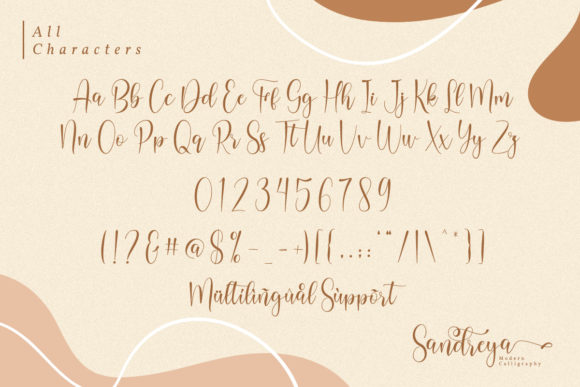 All
Characters
Aa Bb Cc Dd Ee Ff Gg Hh Ii Jj Kk Ll Mm
Nn Oo Pp Qq Rr Ss Tt Uu Vv Ww Xx Yy Zz
0123456789
(!?&#@$%-_-+)[{..;:'"/|\^*}]
Mültilingùål Sùppört
Sandreya
Modern
Calligraphy